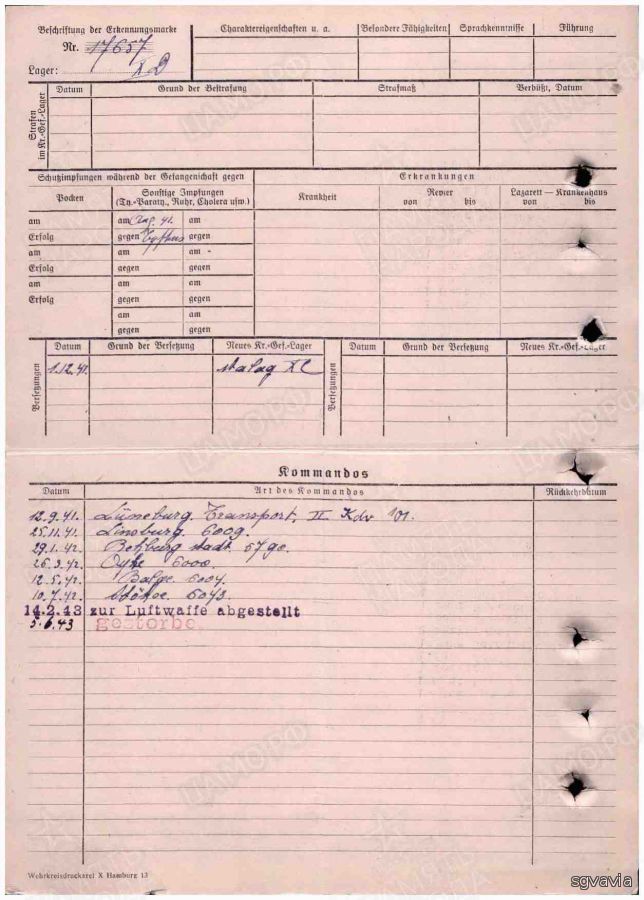 Beschriftung der Erkennungsmarke
Nr. 17657
Lager: X D
Charaktereigenschaften u. a.
Besondere Fähigkeiten
Sprachkenntnisse
Führung
Strafen im Kr.-Gef.-Lager
Datum
Grund der Bestrafung
Strafmaß
Verbüßt, Datum
Schutzimpfungen während der Gefangenschaft gegen
Erkrankungen
Pocken
Sonstige Impfungen
(Ty.-Paraty., Ruhr, Cholera usw.)
Krankheit
Revier
von bis
Lazarett — Krankenhaus
von bis
am am Aug. 41. am
Erfolg gegen Typhus gegen
am am am
Erfolg gegen gegen
am am am
Erfolg gegen gegen
am am
gegen gegen
Versetzungen
Datum Grund der Versetzung Neues Kr.-Gef.-Lager
1.12.41. Stalag X C
Versetzungen
Datum Grund der Versetzung Neues Kr.-Gef.-Lager
Kommandos
Datum Art des Kommandos Rückkehrdatum
12.9.41. Lüneburg. Transport, II Kdo 101.
25.11.41. Linsburg. 6009.
29.1.42. stadt
26.3.42. 6000.
12.5.42. Balge 6004.
10.7.42. 6043.
14.2.43 zur Luftwaffe abgestellt
5.6.43 gestorben
Wehrkreisdruckerei X Hamburg 13
ЦАМО.РФ
sgvavia